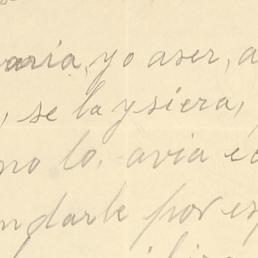 aria, yo aser, a
, se la ysiera,
no lo. avia e
ndarle por es